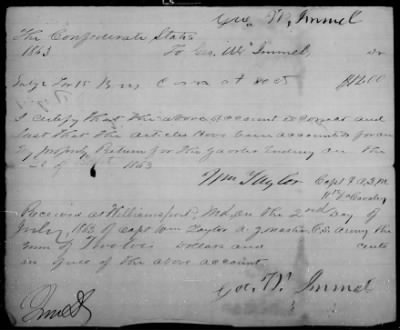 Geo. W. Immel
The Confederate States
1863 To Geo. W. Immel, Dr
July 2 For 15 Bus Corn at $12.00
I certify that the above account is correct and
just that the articles have been accounted for on
my property Return for the quarter Ending on the
of 1863
Wm Taylor Capt & A.Q.M.
Cavalry
Received at Williamsport, Md on the 2nd day of
July, 1863 of Capt Wm Taylor a. q. master C.S. Army the
sum of Twelve Dollars and cents
in full of the above account
Geo. W. Immel